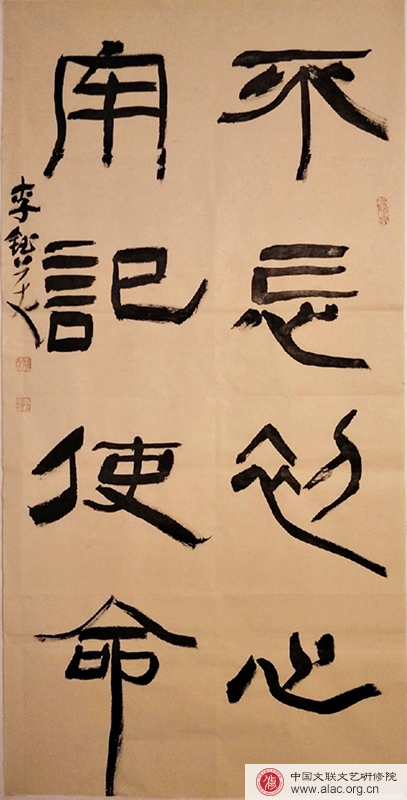 不忘初心
牢記使命
中国文联文艺研修院
www.alac.org.cn